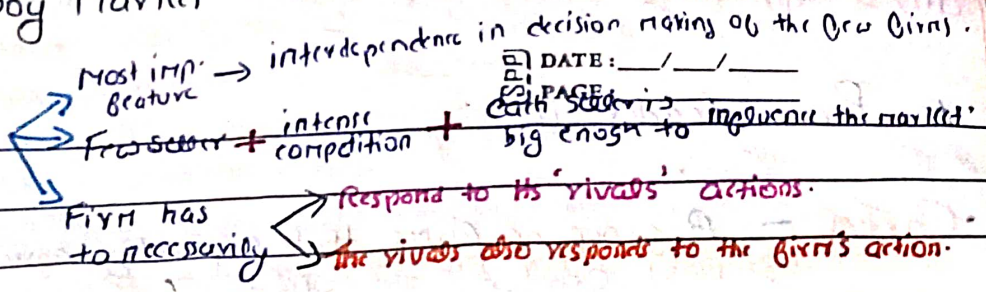 Most imp. feature → interdependence in decision making of the few firms.
DATE: __/__/____
PAGE
Few seller + intense competition + Each seller is big enogh to influence the market.
Firm has to necessarily
Respond to its 'rivals' actions.
The rivals also responds to the firm's action.